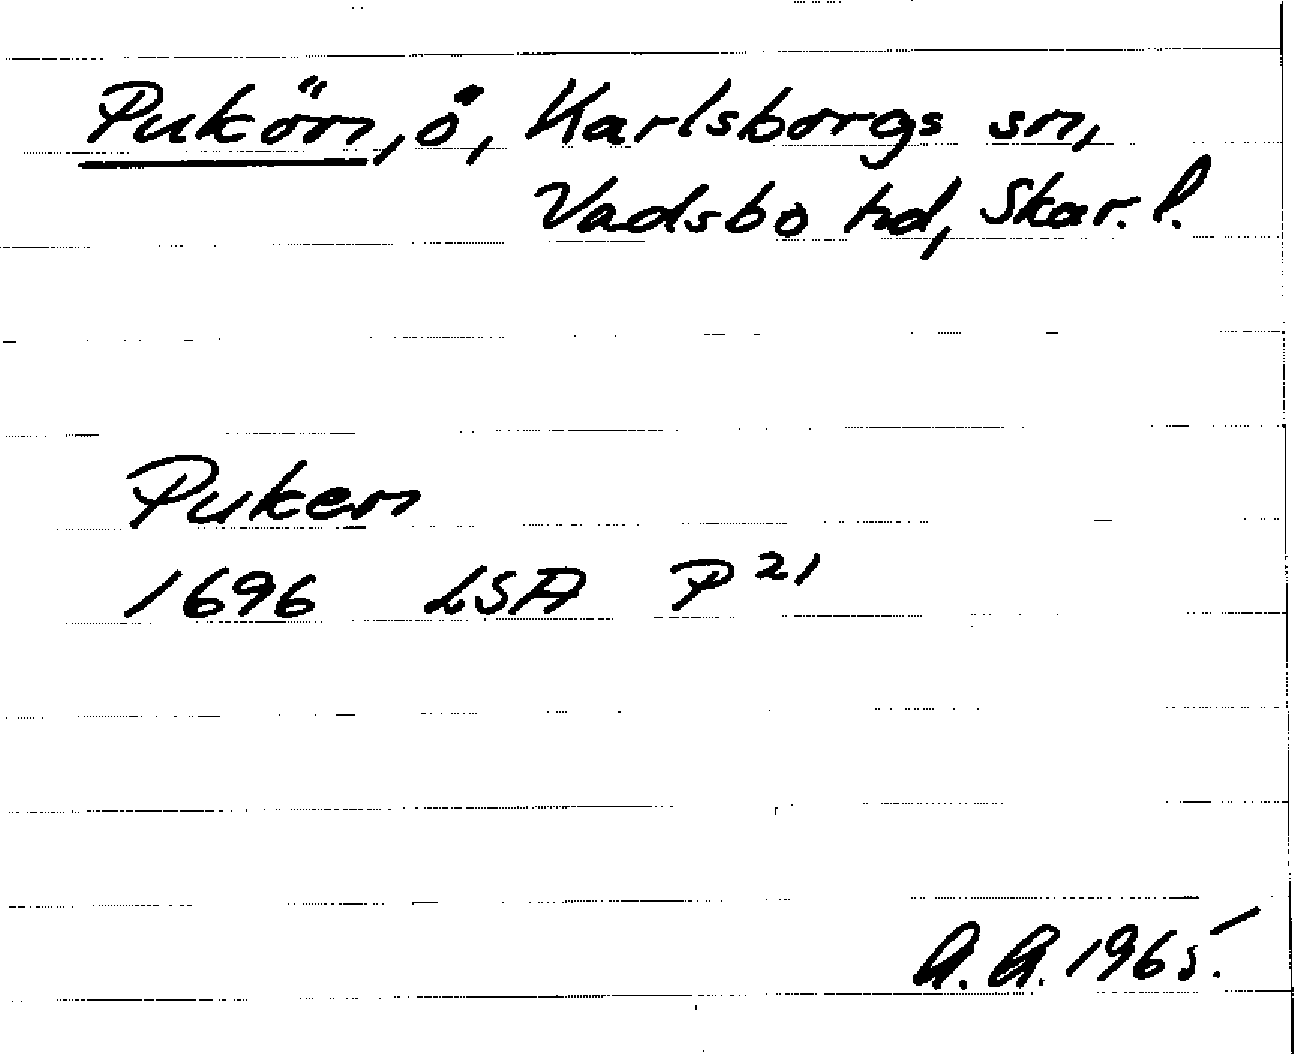 Puköen, ö, Karlsborgs sn,
Vadsbo hd, Skar. l.
Puken
1696 LSA P 21
A. A. 1965.